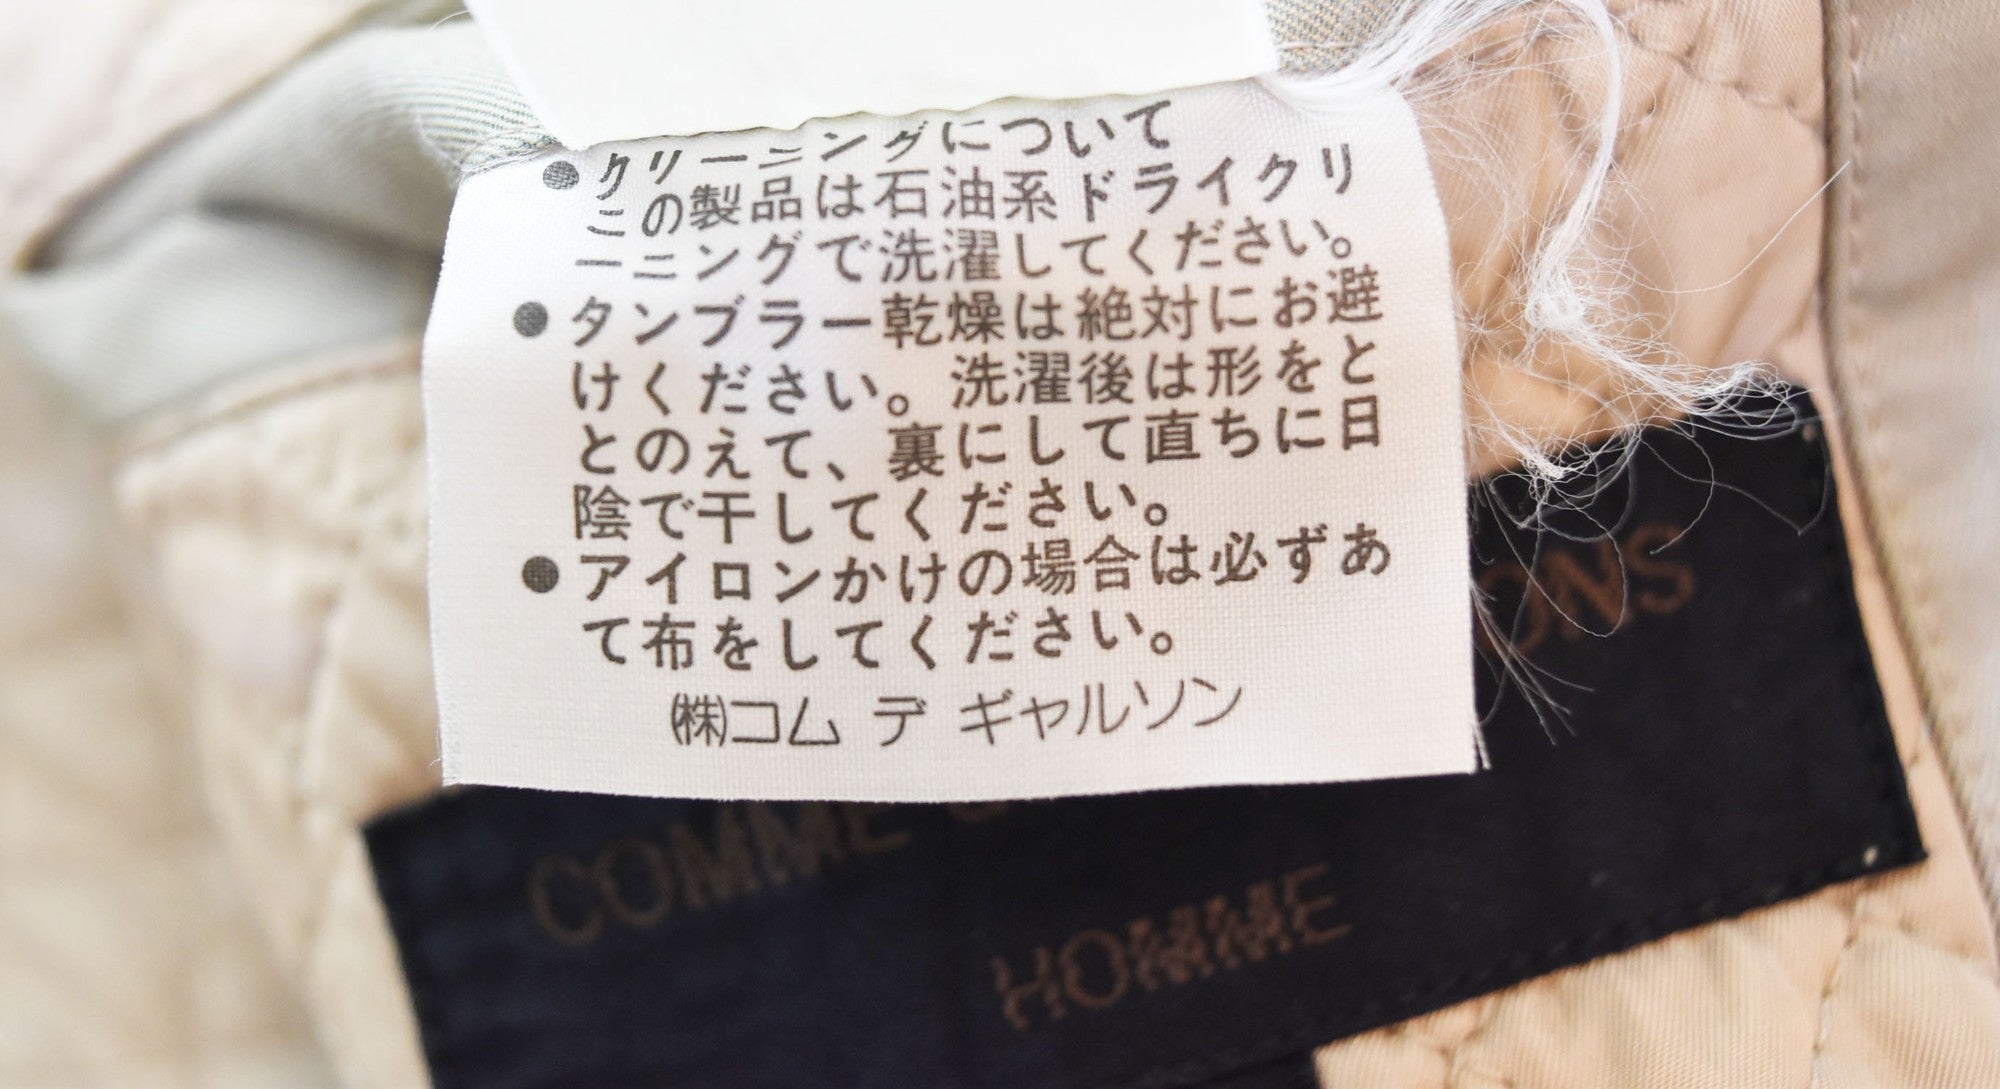 クリーニングについて
●この製品は石油系ドライクリ
ーニングで洗濯してください。
●タンブラー乾燥は絶対にお避
けください。洗濯後は形をと
とのえて、裏にして直ちに日
陰で干してください。
●アイロンかけの場合は必ずあ
て布をしてください。
㈱コム デ ギャルソン
COMME
ONS
HOMME